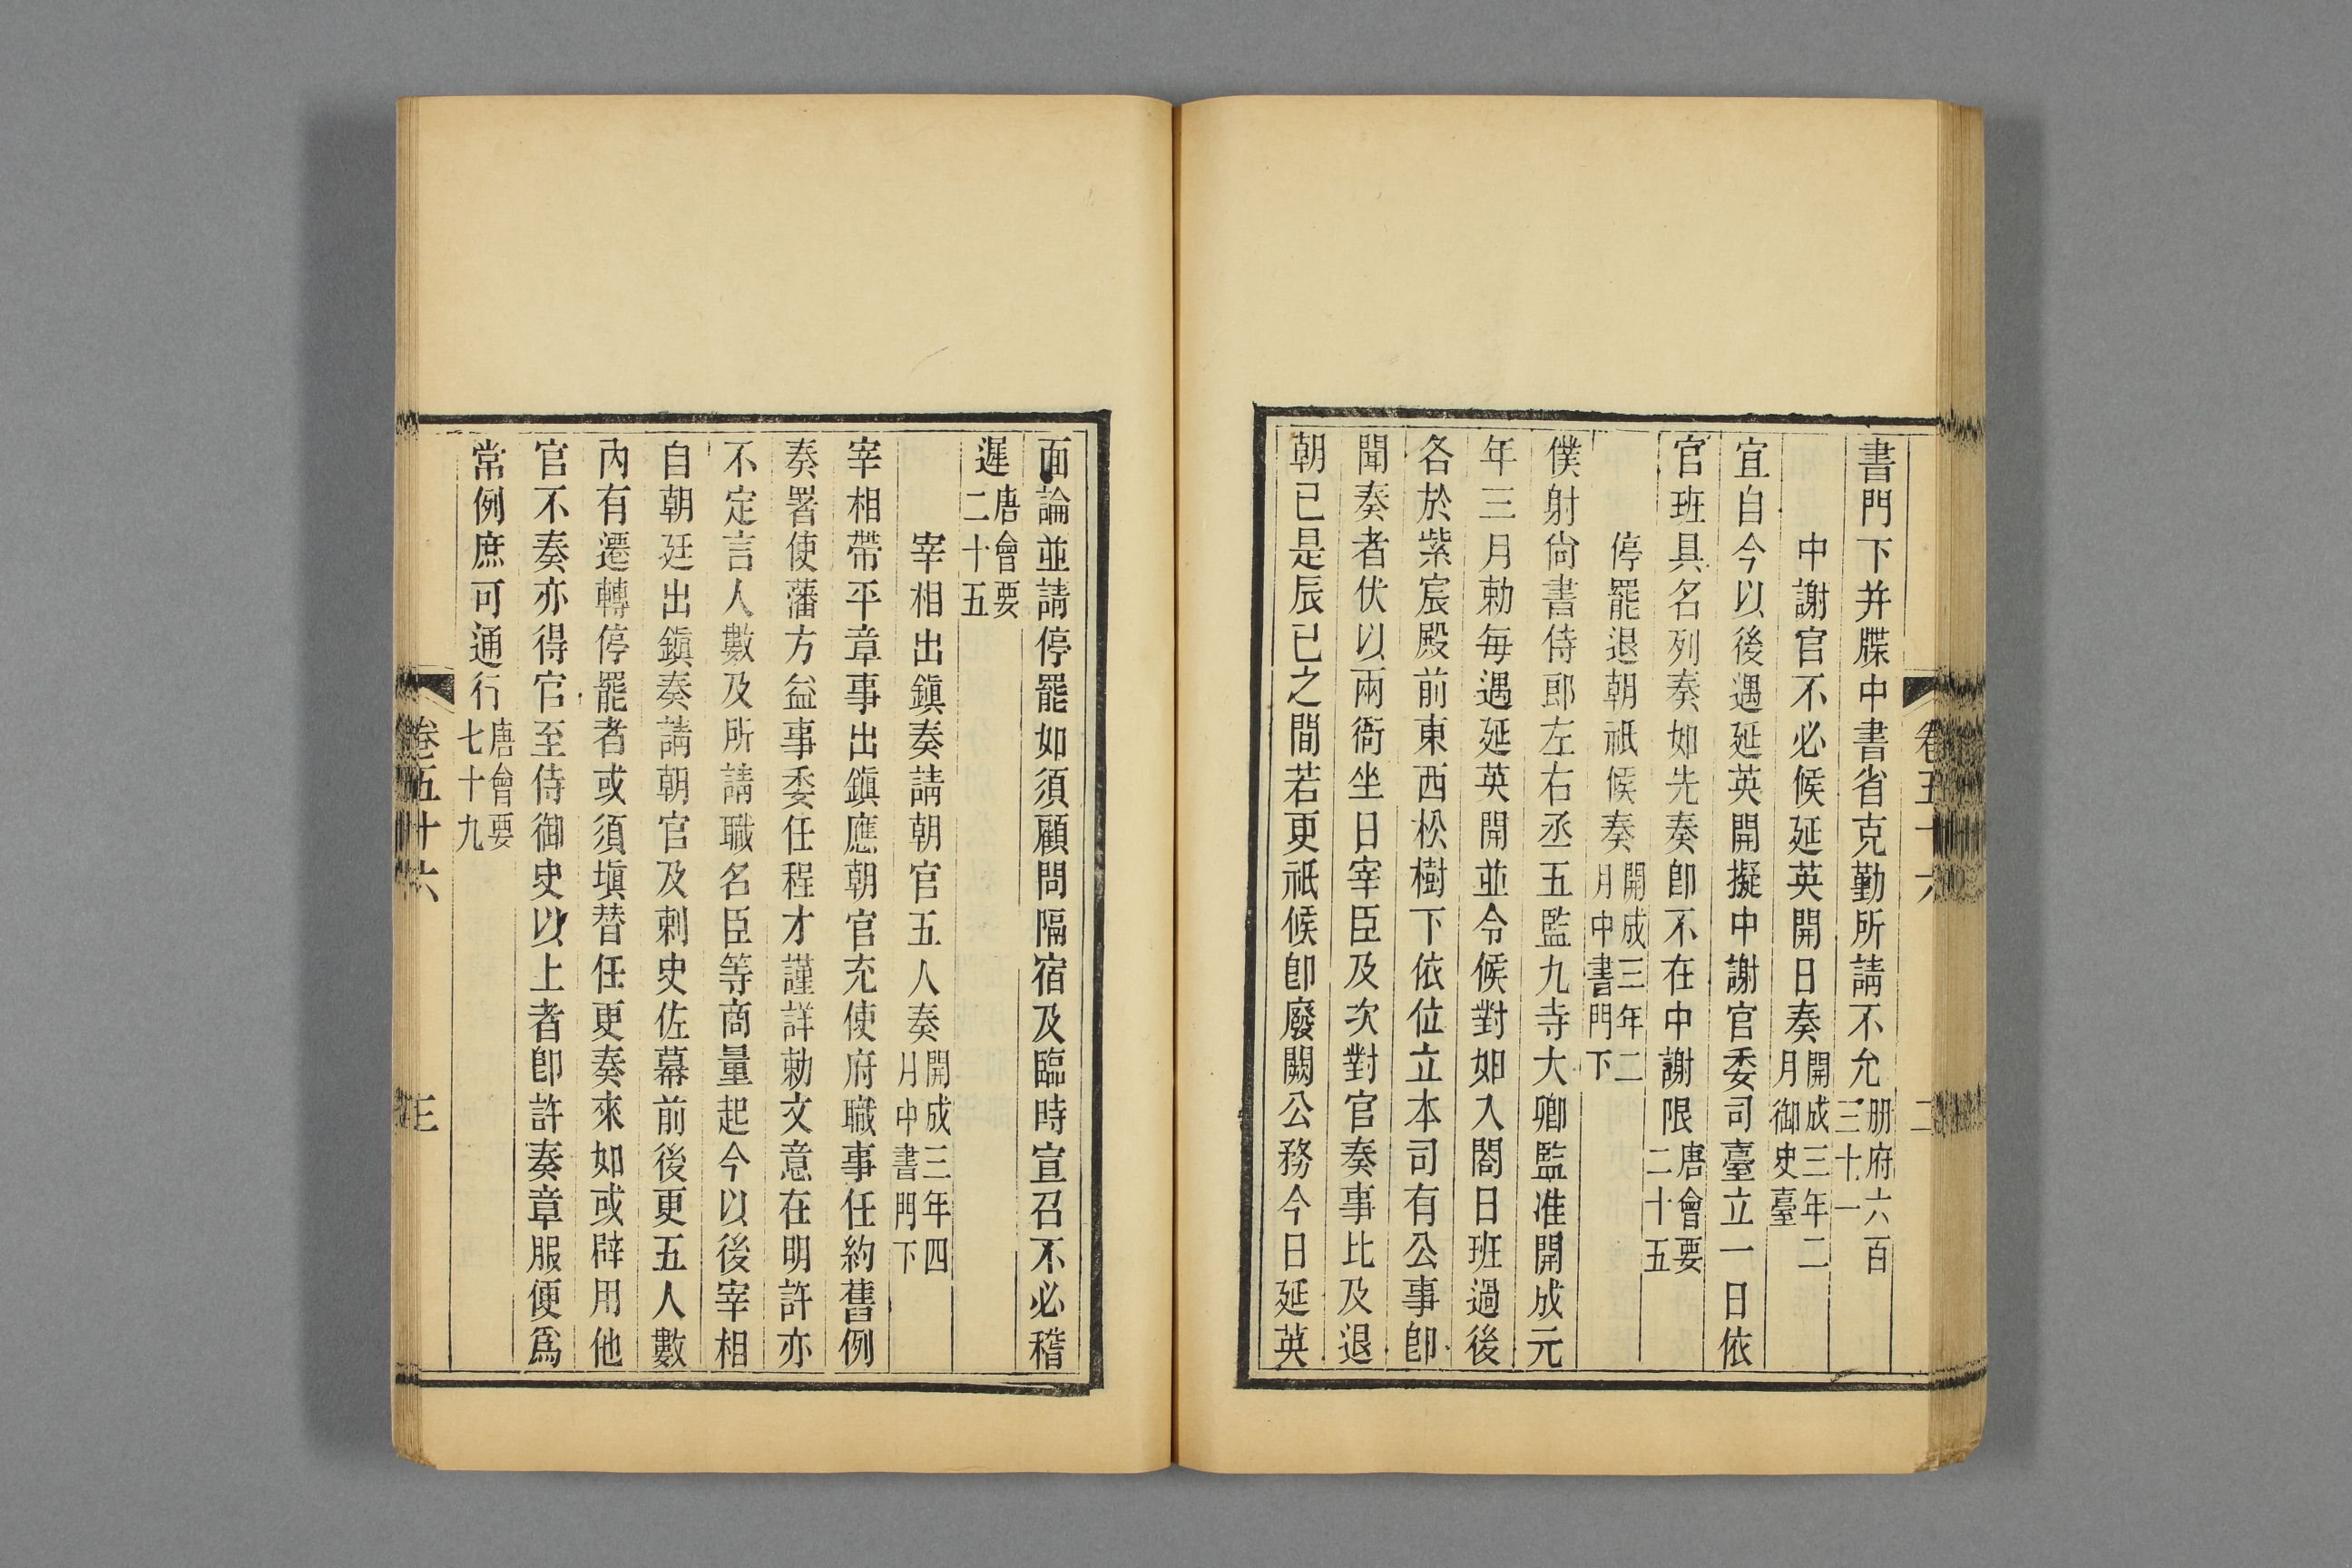 書門下并牒中書省克勤所請不允冊府六百三十一
中謝官不必候延英開日奏開成三年二月御史臺
宜自今以後遇延英開擬中謝官委司臺立一日依
官班具名列奏如先奏卽不在中謝限唐會要二十五
停罷退朝祇候奏開成三年二月中書門下
僕射尙書侍郎左右丞五監九寺大卿監准開成元
年三月勅每遇延英開並令候對如入閤日班過後
各於紫宸殿前東西松樹下依位立本司有公事卽
聞奏者伏以兩衙坐日宰臣及次對官奏事比及退
朝已是辰已之間若更祇候卽廢闕公務今日延英
卷五十六
二
面論並請停罷如須顧問隔宿及臨時宣召不必稽
遲唐會要二十五
宰相出鎭奏請朝官五人奏開成三年四月中書門下
宰相帶平章事出鎭應朝官充使府職事任約舊例
奏署使藩方益事委任程才謹詳勅文意在明許亦
不定言人數及所請職名臣等商量起今以後宰相
自朝廷出鎭奏請朝官及刺史佐幕前後更五人數
內有遷轉停罷者或須塡替任更奏來如或辟用他
官不奏亦得官至侍御史以上者卽許奏章服便爲
常例庶可通行唐會要七十九
卷五十六
三